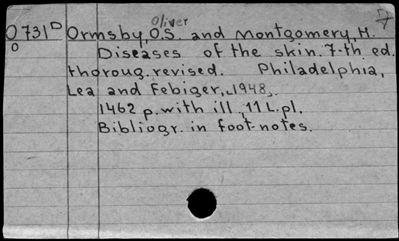 Oliver
O 731 D Ormsby, O.S. and Montgomery, H.
O Diseases of the skin. 7-th ed.
thoroug. revised. Philadelphia,
Lea and Febiger, 1948.
1462 p. with ill., 11 L. pl.
Bibliogr. in foot-notes.